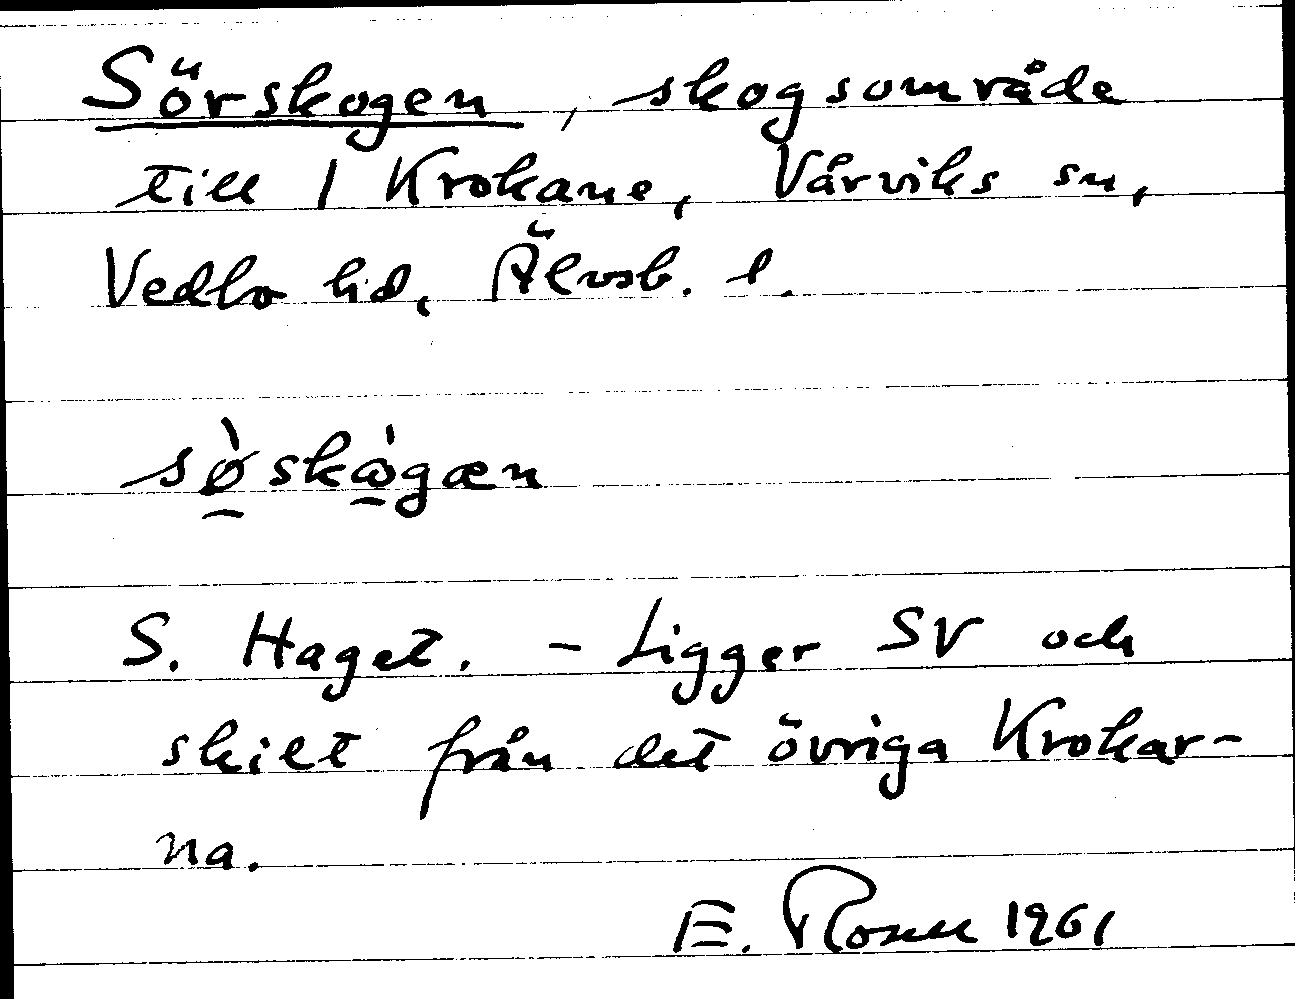 Sörskogen, skogsområde
till 1 Krokane, Vårviks sn,
Vedbo hd, Älvsb. l.
sø̀skògæn
S. Haget. - Ligger SV och
skilt från det övriga Krokar-
na.
E. Rosell 1961